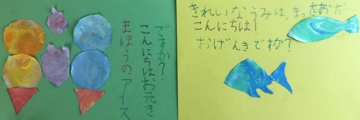 まほうのアイス
こんにちはお元き
ですか?
きれいなうみは、まっさおだ…
こんにちは!
おげんきですか?